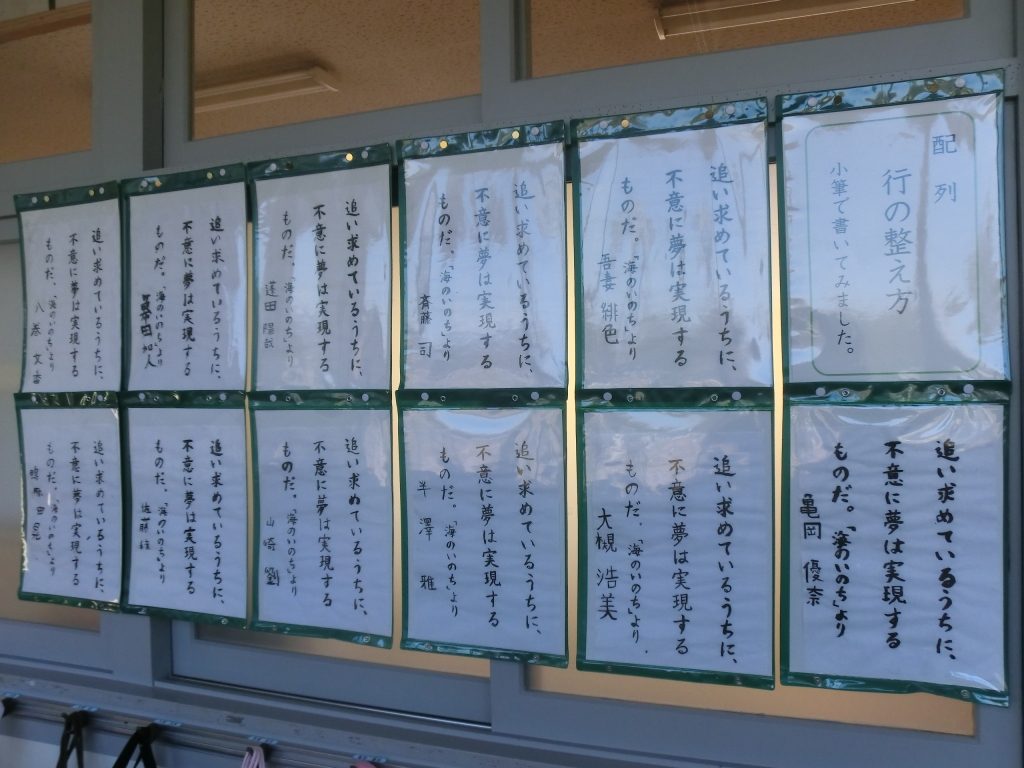 配列
行の整え方
小筆で書いてみました。
追い求めているうちに、
不意に夢は実現する
ものだ。「海のいのち」より
吾妻 緋色
追い求めているうちに、
不意に夢は実現する
ものだ。「海のいのち」より
斉藤 司
追い求めているうちに、
不意に夢は実現する
ものだ。「海のいのち」より
蓬田 陽哉
追い求めているうちに、
不意に夢は実現する
ものだ。「海のいのち」より
追い求めているうちに、
不意に夢は実現する
ものだ。「海のいのち」より
八巻
追い求めているうちに、
不意に夢は実現する
ものだ。「海のいのち」より
亀岡 優奈
追い求めているうちに、
不意に夢は実現する
ものだ。「海のいのち」より.
大槻 浩美
追い求めているうちに、
不意に夢は実現する
ものだ。「海のいのち」より
半澤 雅
追い求めているうちに、
不意に夢は実現する
ものだ。「海のいのち」より
山崎 劉
追い求めているうちに、
不意に夢は実現する
ものだ。「海のいのち」より
佐藤
追い求めているうちに、
不意に夢は実現する
ものだ。「海のいのち」より